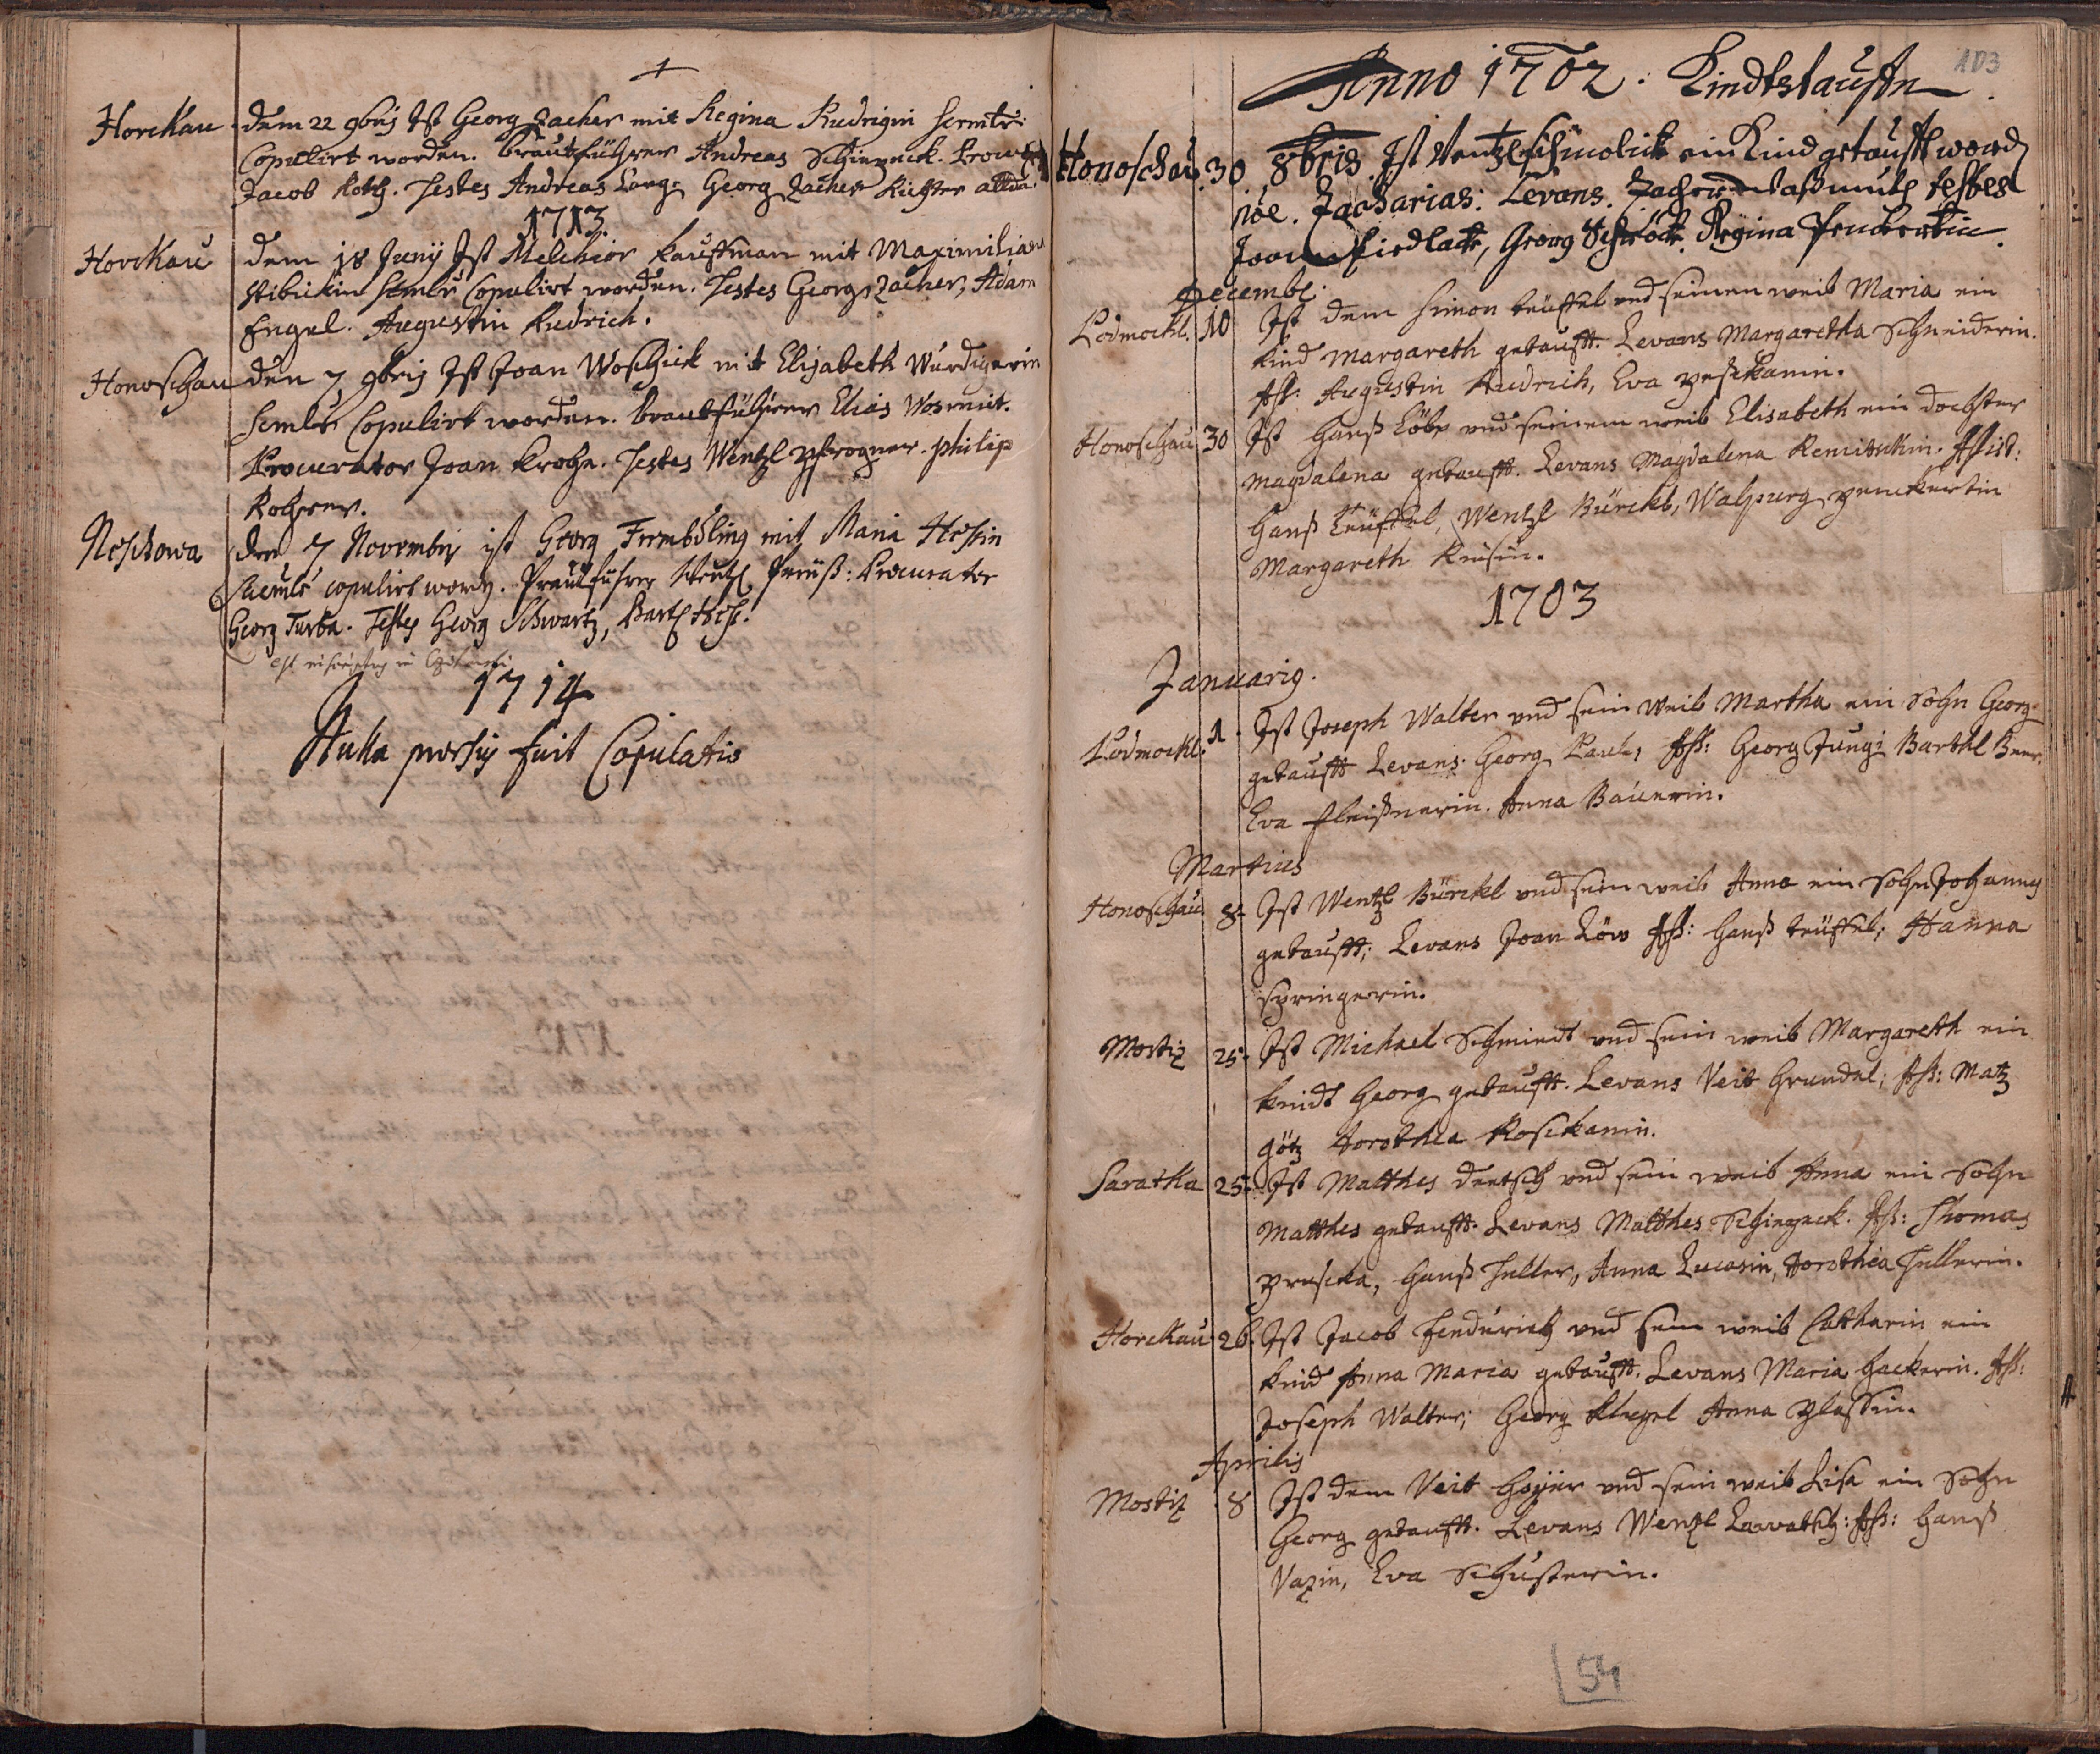 1
Horckau dem 22 9bris Ist Georg Zacher mit Regina Rudrigin
Copulirt worden. Brautführer Andreas Schiepeck.
Jacob Koth. Testes Andreas Lang. Georg Zacher Richter allda.
1713.
Horckau dem 18 Juny Ist Melchior Kauffman mit Maximiliana
Copulirt worden. Testes Georg Zacher, Adam
Engel. Augustin Rudrich.
Honoschau den 7 9bris Ist Joan Woschick mit Elisabeth Würdigerin
Copulirt worden. Brautführer Elias Wosmut.
Procurator Joan Krohe. Testes Wentzl Pfrogner. Philip
Noschowa den 7 Novembris ist Georg Frembdling mit Maria Hessin
copulirt worden. Brautführer Wentzl Preüß: Procurator
Georg Turba. Testes Georg Schwartz, Bartl Heß.
1714
Nulla prorsus fuit Copulatio
103
Anno 1702. Kindtstauffen
Honoschau. 30 8bris. Ist Wentzl Schmolick ein Kind getaufft worden
noe. Zacharias: Levans. Zacharias Waßmuth testes
Joann Fiedlack, Georg Schröck. Regina Penckertin.
Decemb:
Lodmockl. 10 Ist dem Simon teüffel und seinen weib Maria ein
Kind Margareth getaufft. Levans Margaretha Schneiderin.
Ass: Augustin Rudrich, Eva
Honoschau 30 Ist Hanß Löbe und seinem weib Elisabeth ein dochter
Magdalena getaufft. Levans Magdalena Assist:
Hanß teüffel, Wentzl Bürckl, Walpurg Penckertin
Margareth
1703
Januarius.
Lodmockl. 1. Ist Joseph Walter und sein weib Martha ein Sohn Georg
getaufft Levans Georg Paul, Ass: Georg Jungi Barthl
Eva Fleißnerin. Anna Bäuerin.
Martius
Honoschau 8. Ist Wentzl Bürckl und sein weib Anna ein Sohn Johannes
getaufft; Levans Joan Löw Ass: Hanß teüffel; Hanna
Springerin.
Mostiz 25. Ist Michael Schmiedt und sein weib Margareth ein
Kindt Georg getaufft. Levans Veit Grundel; Ass: Matz
Götz Dorothea Roschkanin.
Saratka 25. Ist Matthes Deutsch und sein weib Anna ein Sohn
Matthes getaufft. Levans Matthes Schiepeck. Ass: Thomas
Hanß Heller, Anna Lucasin, Dorothea Hellerin.
Horckau 26. Ist Jacob Hendürich und sein weib Catharin ein
Kind Anna Maria getaufft. Levans Maria Hackerin. Ass:
Joseph Walter; Georg Klugel Anna Plassin.
Aprilis
Mostiz 8 Ist dem Veit Hoyer und sein weib Lisa ein Sohn
Georg getaufft. Levans Wentzl Lawatsch: Ass: Hanß
Vazin, Eva Schusterin.
54